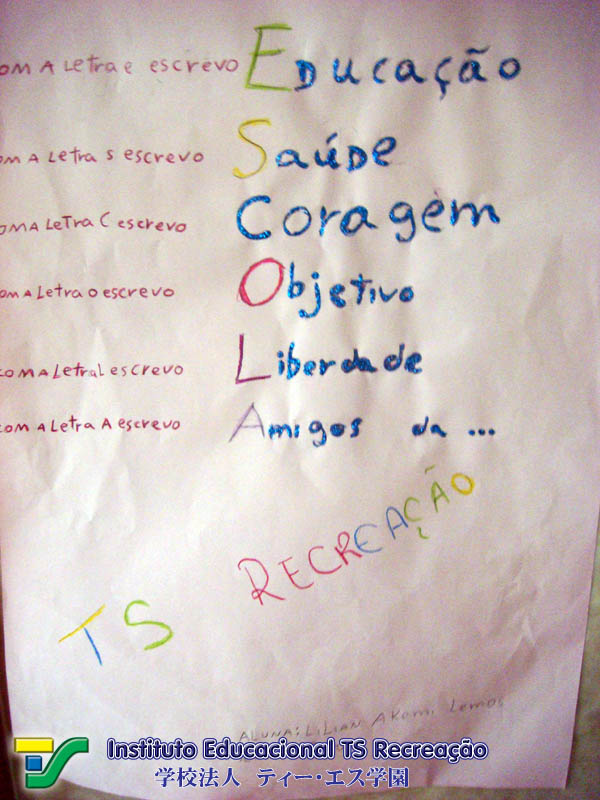 OM A Letra e escrevo Educação
om A Letra s escrevo Saúde
OM A LeTra C escrevo Coragem
om a Letra o escrevo Objetivo
COM A Letra L escrevo Liberdade
com A Letra A escrevo Amigos da ...
TS RECREAÇÃO
ALUNA: LiLiAN AKemi Lemos
Instituto Educacional TS Recreação
学校法人 ティー・エス学園